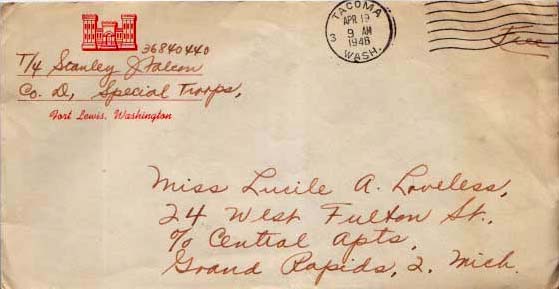 36840440
T/4 Stanley J Falcon
Co. D, Special Troops,
Fort Lewis, Washington
TACOMA
APR 19
9 AM
1946
3
WASH.
Free
Miss Lucile A. Loveless,
24 West Fulton St.,
% Central Apts,
Grand Rapids, 2. Mich.